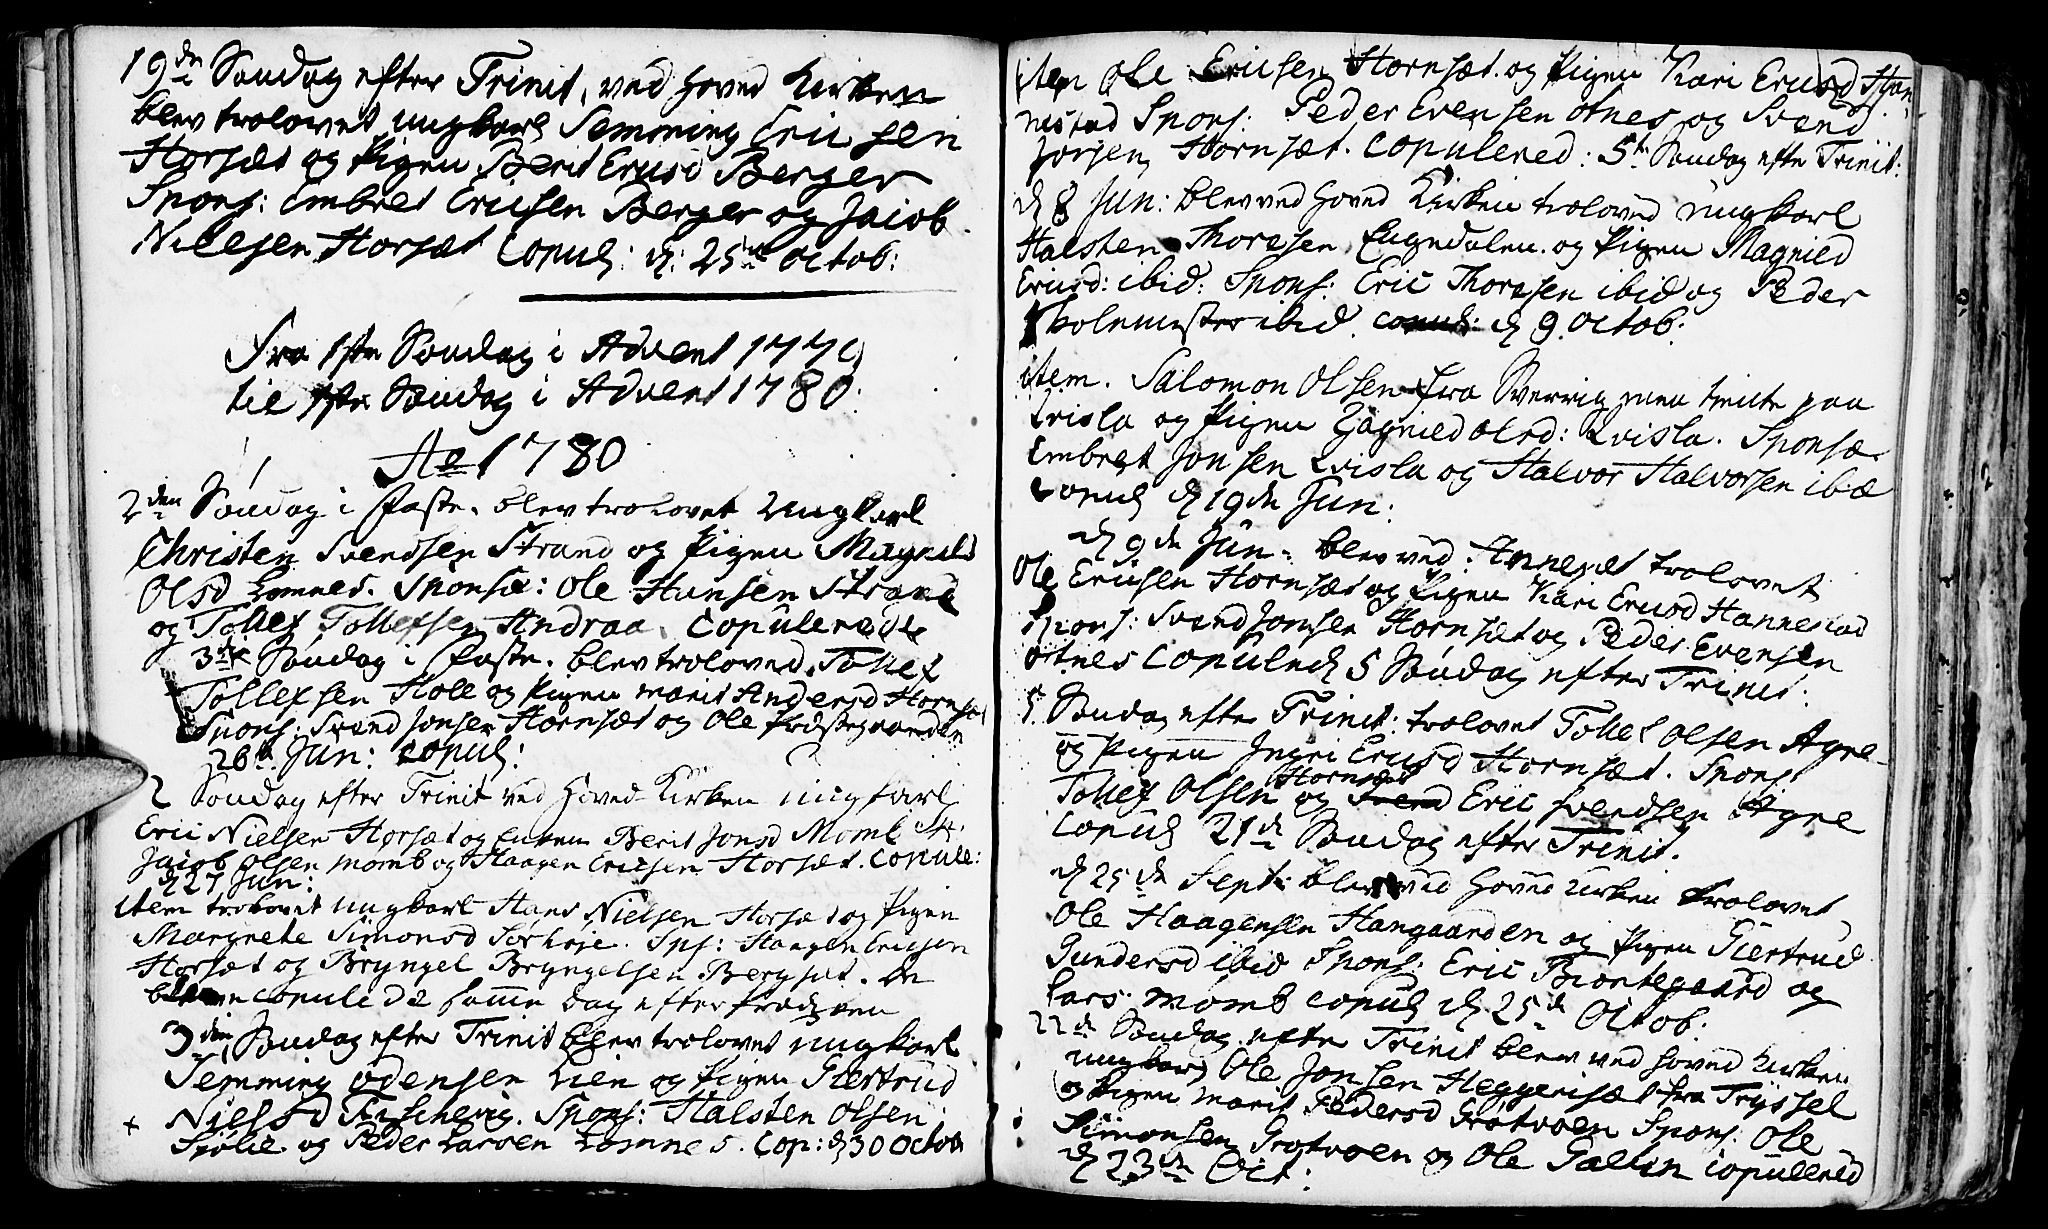 19de Søndag efter Trinit, ved Hoved Kirken
blev trolovet ungkarl Semming Ericsen
Horsæt og Pigen Berit Ericsd Berger
Spons: Embret Ericsen Berger og Jacob
Nielsen Horsæt Copul: d: 25de Octob:
Fra 1ste Søndag i Advent 1779
til 1ste Søndag i Advent 1780.
Ao 1780
2den Søndag i Faste. blev trolovet Ungkarl
Christen Svendsen Strand og Pigen Magnild
Olsd Lomnes. Sponsæ: Ole Hansen Strand
og Tollef Tollefsen Andraa. Copulerede
3die Søndag i Faste. blev troloved Tollef
Tollefsen Hole og Pigen Marit Andersd Hornset
Spons: Svend Jonsen Hornsæt og Ole Prdstegaarden
26de Jun: Copul:
2 Søndag efter Trinit ved Hoved Kirken ungkarl
Eric Nielsen Horsæt og Enken Berit Jonsd Momb
Jacob Olsen Momb og Haagen Ericsen Horsæt. Copule:
d 27 Jun:
item trolovet ungkarl Hans Nielsen Horsæt og Pigen
Margrete Simonsd Sorhøje. Sps: Haagen Ericsen
Horsæt og Bryngel Bryngelsen Bergset. De
bleve copulede samme Dag efter Prædiken
3die Søndag efter Trinit blev trolovet ungkarl
Semming Odensen Lien og Pigen Giertrud
Nielsd Fischevig. Spons: Halsten Olsen
+ Sjølie og Peder Larsen Lomnes. Cop: d 30 Octob
item Ole Ericsen Hornsæt. og Pigen Kari Ericsd Han
nestad Spons: Peder Evensen Otnes og Svend
Jonsen Hornsæt. Copulered: 5te Søndag efter Trinit:
d 8 Jun: blev ved Hoved Kirken troloved ungkarl
Halsten Thoresen Engedalen. og Pigen Magnied
Ericsd: ibid: Spons: Eric Thoresen ibid og Peder
Skolemester ibid. Copul: d 9 Octob:
item. Salomon Olsen fra Sverrig men tiente paa
Qvisla og Pigen Ragnied Olsd: Qvisla. Sponsæ
Embret Jonsen Qvisla og Halvor Halvorsen ibid
Copul d 19de Jun:
d 9de Jun: blev ved Annexet trolovet
Ole Ericsen Hornsæt og Pigen Kari Ericsd Hannestad
Spons: Svend Jonsen Hornsæt og Peder Evensen
Otnes Copuled 5 Søndag efter Trinit:
5 Søndag efter Trinit: trolovet Tollef Olsen Agre
og Pigen Ingri Ericsd Hornsæt. Spons
Tollef Olsen Hornsæt og Svend Eric Svendsen Agre
Copul 21de Søndag efter Trinit.
d 25de Sept: blev ved Hoved Kirken trolovet
Ole Haagensen Hangaarden og Pigen Giertrud
Gundersd ibid Spons: Eric Biontegaard og
Lars Momb Copul d 25de Octob:
22de Søndag efter Trinit blev ved Hoved Kirken
ungkarl Ole Jonsen Heggerisæt fra Tryssel
og Pigen Marit Pedersd Grøtvoen Spons: Ole
Simonsen Grøtvoen og Ole Gallin copullered
d 23de Oct: